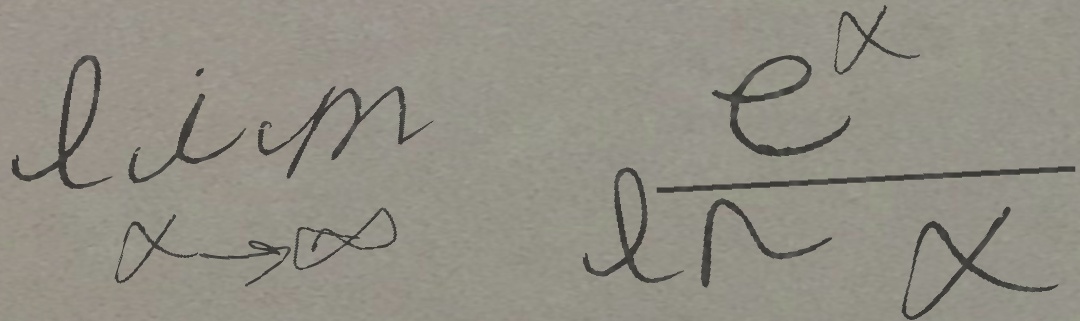 lim x→∞ e^x / ln x